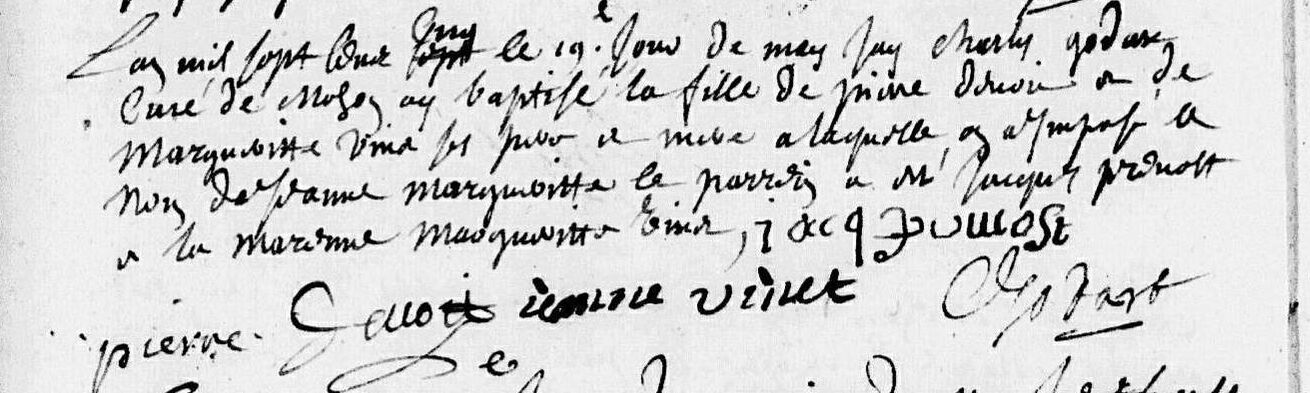 Lan mil sept cent huit le 19e Jour de may Jay Charles godart
Curé de ay baptisé la fille de pierre denoit et de
Margueritte vinet ses pere et mere a laquelle on a Impose le
Nom de Jeanne Margueritte le parrein a esté Jacques prevost
et la Marenne Margueritte vinet, jacq prevost
pierre denoit jeanne vinet C godart